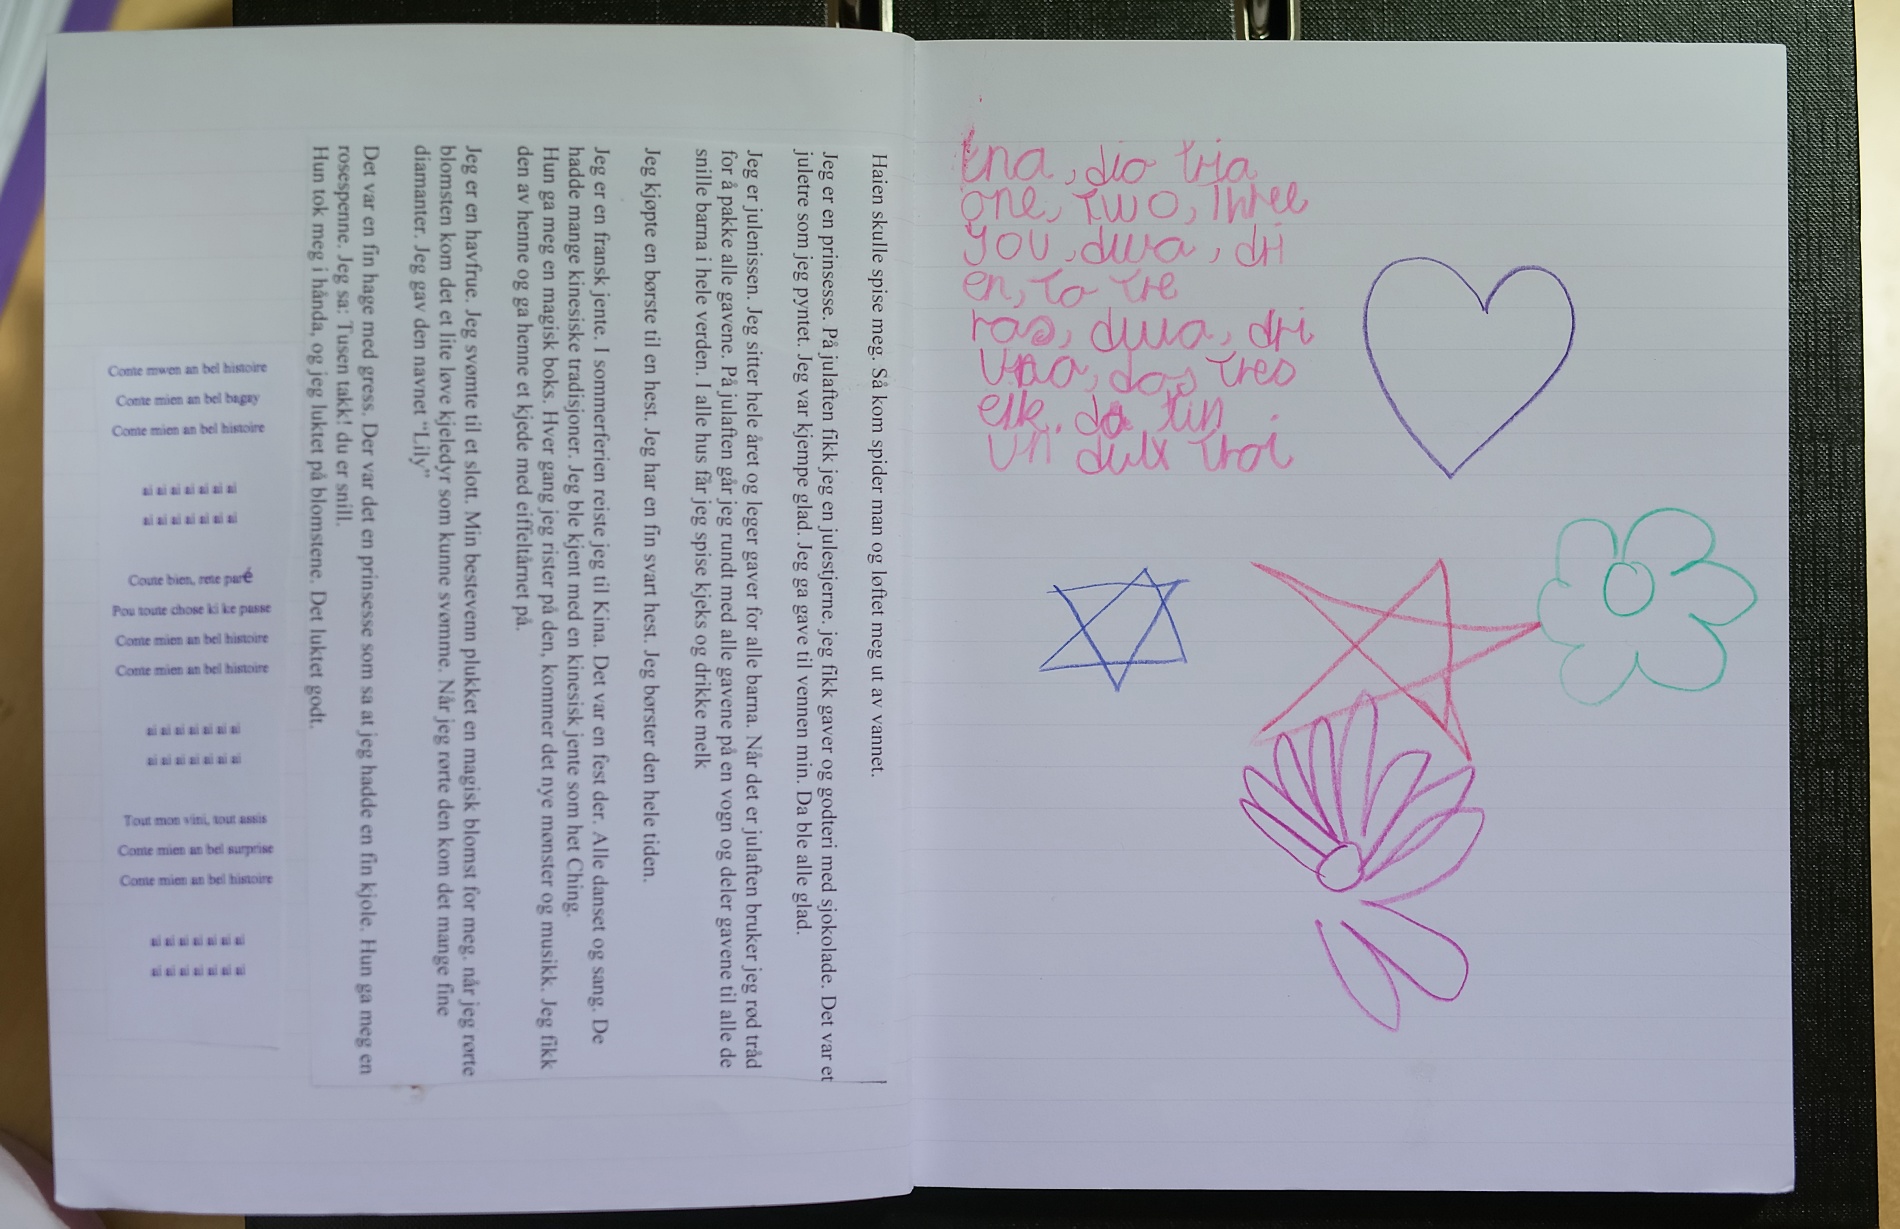 Haien skulle spise meg. Så kom spider man og løftet meg ut av vannet.
Jeg er en prinsesse. På julaften fikk jeg en julestjerne. jeg fikk gaver og godteri med sjokolade. Det var et
juletre som jeg pyntet. Jeg var kjempe glad. Jeg ga gave til vennen min. Da ble alle glad.
Jeg er julenissen. Jeg sitter hele året og leger gaver for alle barna. Når det er julaften bruker jeg rød tråd
for å pakke alle gavene. På julaften går jeg rundt med alle gavene på en vogn og deler gavene til alle de
snille barna i hele verden. I alle hus får jeg spise kjeks og drikke melk
Jeg kjøpte en børste til en hest. Jeg har en fin svart hest. Jeg børster den hele tiden.
Jeg er en fransk jente. I sommerferien reiste jeg til Kina. Det var en fest der. Alle danset og sang. De
hadde mange kinesiske tradisjoner. Jeg ble kjent med en kinesisk jente som het Ching.
Hun ga meg en magisk boks. Hver gang jeg rister på den, kommer det nye mønster og musikk. Jeg fikk
den av henne og ga henne et kjede med eiffeltårnet på.
Jeg er en havfrue. Jeg svømte til et slott. Min bestevenn plukket en magisk blomst for meg. når jeg rørte
blomsten kom det et lite løve kjeledyr som kunne svømme. Når jeg rørte den kom det mange fine
diamanter. Jeg gav den navnet “Lily”
Det var en fin hage med gress. Der var det en prinsesse som sa at jeg hadde en fin kjole. Hun ga meg en
rosespenne. Jeg sa: Tusen takk! du er snill.
Hun tok meg i hånda, og jeg luktet på blomstene. Det luktet godt.
Conte mwen an bel histoire
Conte mien an bel bagay
Conte mien an bel histoire
ai ai ai ai ai ai ai
ai ai ai ai ai ai ai
Coute bien, rete paré
Pou toute chose ki ke passe
Conte mien an bel histoire
Conte mien an bel histoire
ai ai ai ai ai ai ai
ai ai ai ai ai ai ai
Tout mon vini, tout assis
Conte mien an bel surprise
Conte mien an bel histoire
ai ai ai ai ai ai ai
ai ai ai ai ai ai ai
ena, dio tria
one, two, three
you, dwa, dri
en, to tre
ras, dwa, dri
una, dos tres
un troi